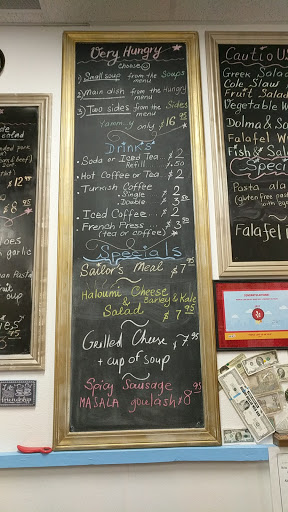 Very Hungry
CHOOSE
1) Small soup from the Soups menu
2) Main dish from the Hungry menu
3) Two sides from the Sides menu
Yamm..y only $16.95
Drinks
Soda or Iced Tea.. $2
Refill 1.50
Hot Coffee or Tea.. $2
Turkish Coffee
Single $2
Double $3.50
Iced Coffee.... $2
French Press.... $3.50
(tea or coffee)
Specials
Sailor's Meal $7.95
Haloumi Cheese
& Barley & Kale
Salad $7.95
Grilled Cheese $7.95
+ cup of soup
Spicy Sausage
MASALA goulash $8.95
Cautiou
Greek Salad
Cole Slaw
Fruit Salad
Vegetable
Dolma & Sa
Falafel W
Fish & Sala
Speci
Pasta a la
(gluten free past
Falafel
$12.95
8.95
toes
garlic
an Pasta
fruit
cup